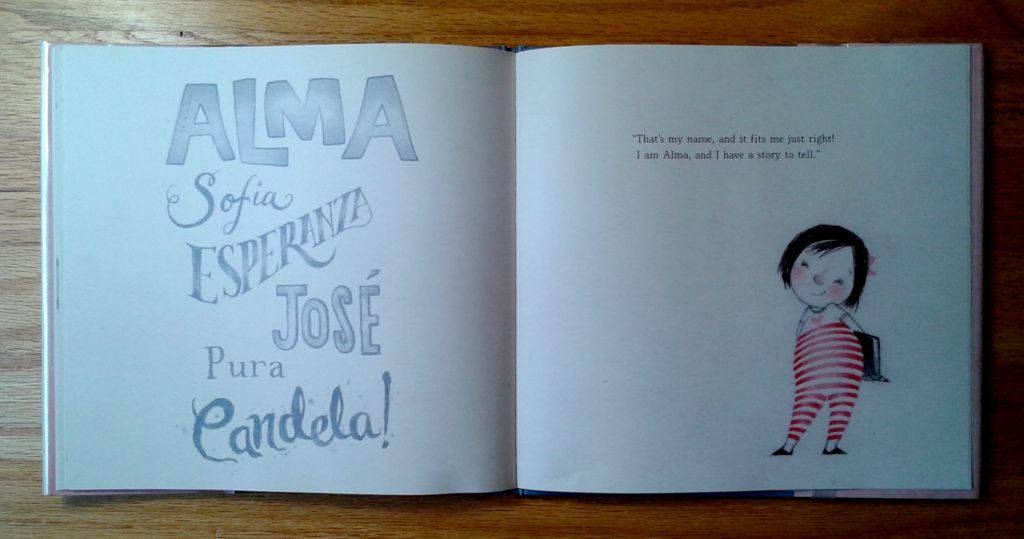 ALMA
Sofia
ESPERANZA
JOSÉ
Pura
Candela!
"That's my name, and it fits me just right!
I am Alma, and I have a story to tell."